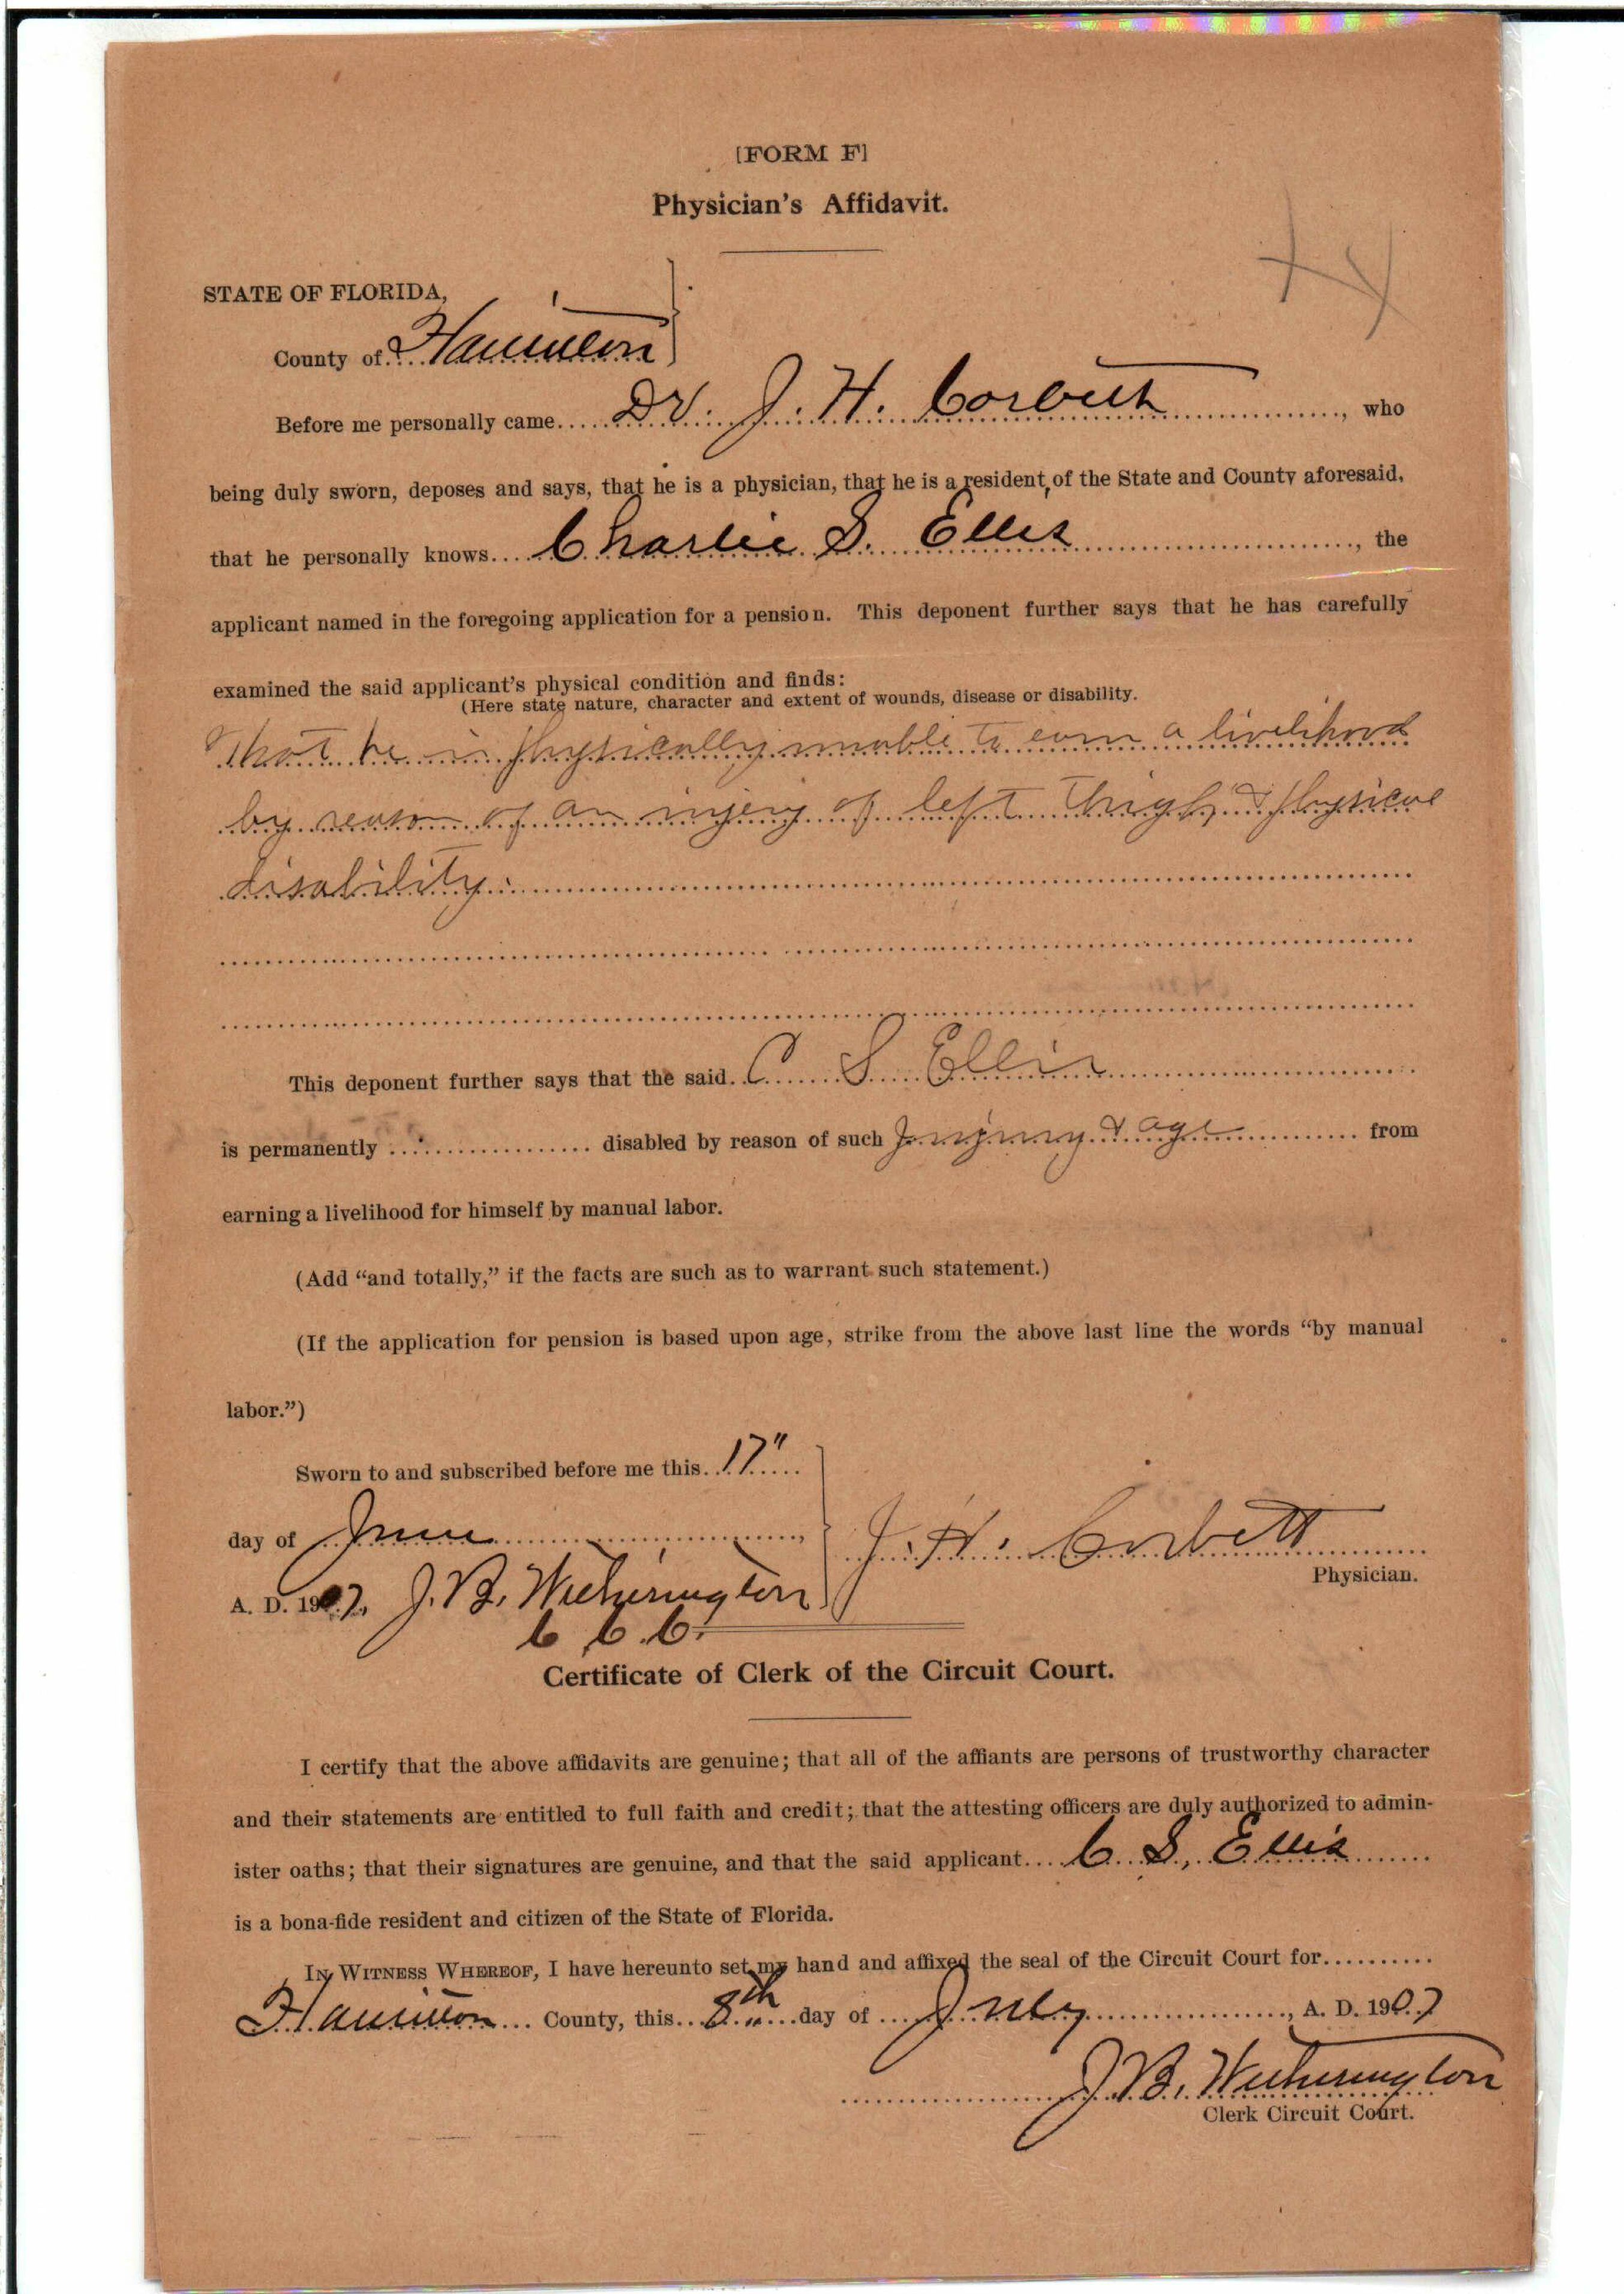 [FORM F]
Physician's Affidavit.
STATE OF FLORIDA,
County of Hamilton
Before me personally came Dr. J. H. Corbett, who
being duly sworn, deposes and says, that he is a physician, that he is a resident of the State and County aforesaid,
that he personally knows Charlie S. Ellis, the
applicant named in the foregoing application for a pension. This deponent further says that he has carefully
examined the said applicant's physical condition and finds:
(Here state nature, character and extent of wounds, disease or disability.
That he is physically unable to earn a livelihood
by reason of an injery of left Thigh & physical
disability.
This deponent further says that the said C S Ellis
is permanently disabled by reason of such Injury & age from
earning a livelihood for himself by manual labor.
(Add "and totally," if the facts are such as to warrant such statement.)
(If the application for pension is based upon age, strike from the above last line the words "by manual
labor.")
Sworn to and subscribed before me this 17"
day of June,
A. D. 1907, J. B. Witherington
C. C. C.
J. H. Corbett
Physician.
Certificate of Clerk of the Circuit Court.
I certify that the above affidavits are genuine; that all of the affiants are persons of trustworthy character
and their statements are entitled to full faith and credit; that the attesting officers are duly authorized to admin-
ister oaths; that their signatures are genuine, and that the said applicant C. S. Ellis
is a bona-fide resident and citizen of the State of Florida.
IN WITNESS WHEREOF, I have hereunto set my hand and affixed the seal of the Circuit Court for
Hamilton County, this 8th day of July, A. D. 1907
J. B. Witherington
Clerk Circuit Court.